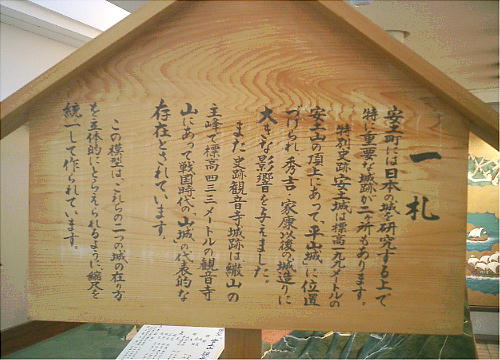 一札
安土町には日本の城を研究する上で
特に重要な城跡が二ヶ所もあります。
特別史跡安土城は標高一九九メートルの
安土山の頂上にあって、「平山城」に位置
づけられ、秀吉、家康以後の城造りに
大きな影響を与えました。
また、史跡観音寺城跡は繖山の
主峰で標高四三三メートルの観音寺
山にあって戦国時代の「山城」の代表的な
存在とされています。
この模型は、これらの二つの城の在り方
を立体的にとらえられるように、縮尺を
統一して作られています。